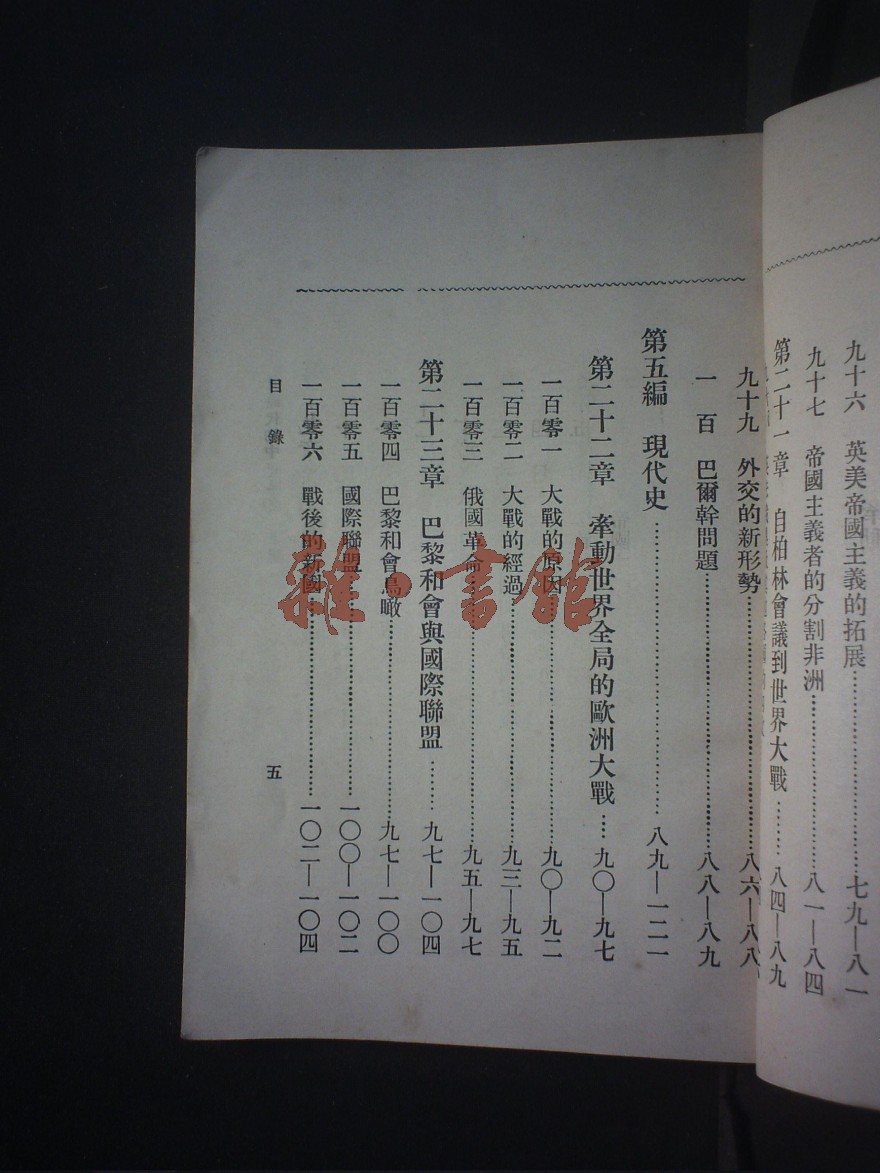 九十六 英美帝國主義的拓展……七九—八一
九十七 帝國主義者的分割非洲……八一—八四
第二十一章 自柏林會議到世界大戰……八四—八九
九十九 外交的新形勢……八六—八八
一百 巴爾幹問題……八八—八九
第五編 現代史……八九—一二一
第二十二章 牽動世界全局的歐洲大戰……九〇—九七
一百零一 大戰的原因……九〇—九二
一百零二 大戰的經過……九三—九五
一百零三 俄國革命……九五—九七
第二十三章 巴黎和會與國際聯盟……九七—一〇四
一百零四 巴黎和會鳥瞰……九七—一〇〇
一百零五 國際聯盟……一〇〇—一〇二
一百零六 戰後的新國……一〇二—一〇四
目錄 五
雜·書館